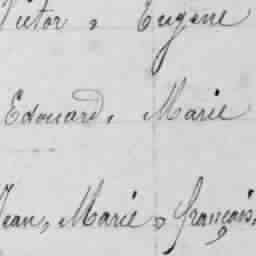 Victor, Eugène
Edouard, Marie
Jean, Marie, françois,